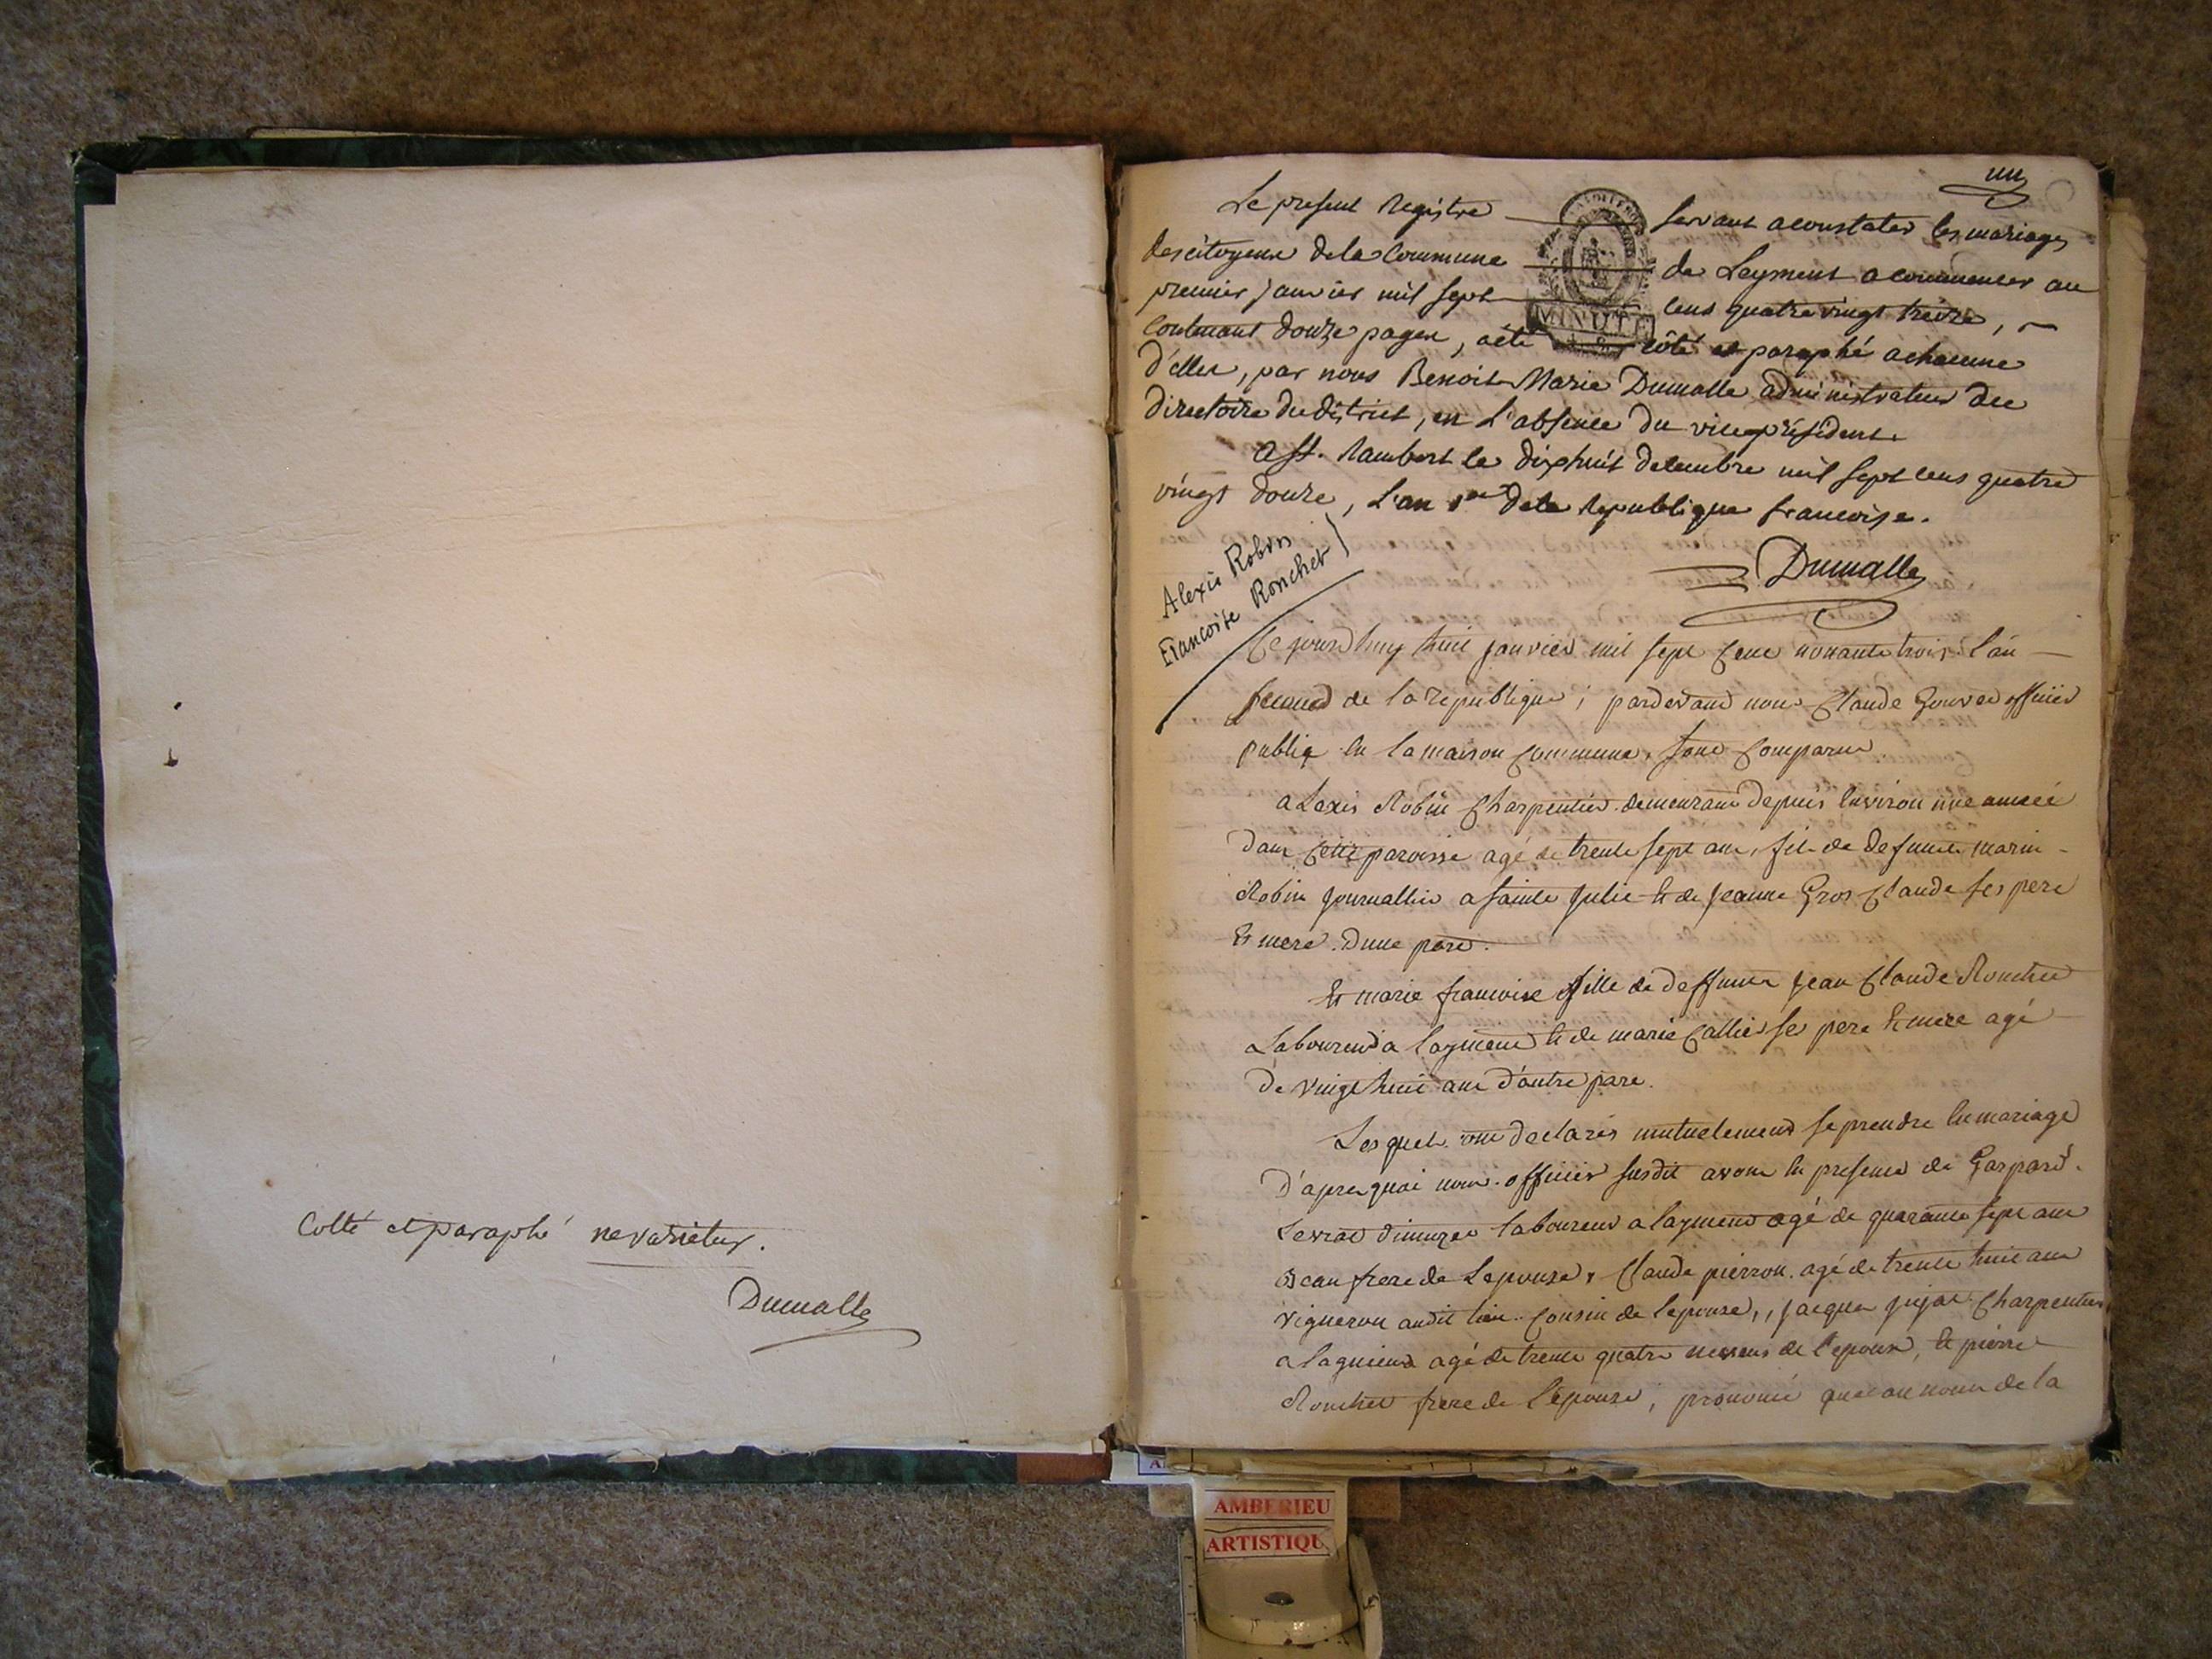 Cotté et paraphé nevarietur.
Dumalle
un
Le present Registre servant a constater les mariages
des citoyens de la Commune de Leyment a commencer au
premier janvier mil sept cens quatre vingt treize,
contenant douze pages, a été côté et paraphé a chacune
d'elles, par nous Benoit Marie Dumalle administrateur du
directoire du district, en l'absence du vice président.
a St. Rambert le dixhuit decembre mil sept cens quatre
vingt douze, l'an 1er de la Republique francoise.
MINUTE
Dumalle
Alexis Robin
Francoise Ronchet
Ce jourdhuy huit janvier mil sept cent nonante trois l'an
second de la republique; pardevant nous Claude officier
public en la maison commune, sont comparus
alexis Robin charpentier demeurant depuis environ une année
dans cette paroisse agé de trente sept ans, fils de defunt marin
Robin journallier a sainte julie et de jeanne Gros Claude ses pere
et mere. d'une part.
et marie francoise fille de deffunt jean Claude Ronchet
Laboureur a layment et de marie Callier ses pere et mere agé
de vingt huit ans d'autre part.
Lesquels ont declarés mutuelement se prendre en mariage
d'apres quoi nous officier susdit avons en presence de Gaspard
Levrat laboureur a layment agé de quarante sept ans
beau frere de Lepouse, Claude pierron agé de trente huit ans
vigneron audit lieu cousin de lepouse, jacques charpentier
a lagnieux agé de trente quatre neveux de l'epoux, et pierre
Ronchet frere de l'epouse, prononcé que au nom de la
AMBERIEU
ARTISTIQU